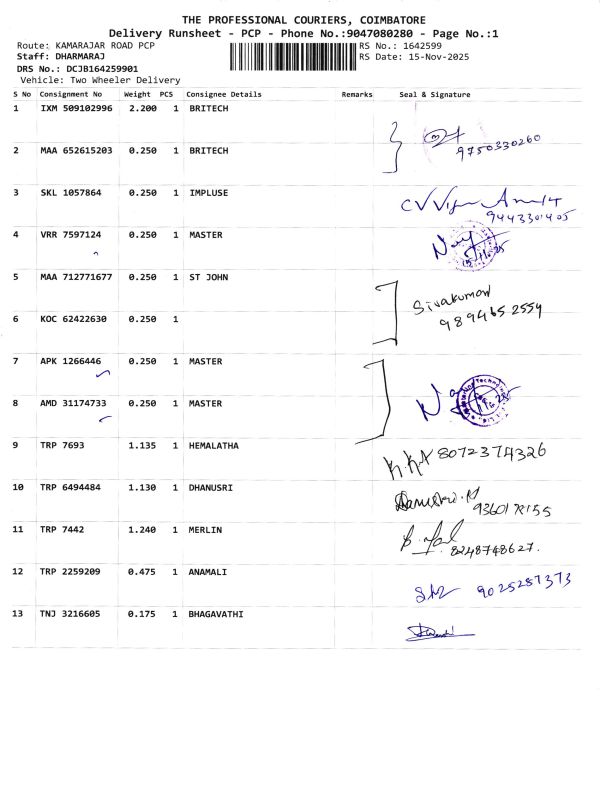 THE PROFESSIONAL COURIERS, COIMBATORE
Delivery Runsheet - PCP - Phone No.:9047080280 - Page No.:1
Route: KAMARAJAR ROAD PCP RS No.: 1642599
Staff: DHARMARAJ RS Date: 15-Nov-2025
DRS No.: DCJB164259901
Vehicle: Two Wheeler Delivery
S No Consignment No Weight PCS Consignee Details Remarks Seal & Signature
1 IXM 509102996 2.200 1 BRITECH
9750330260
2 MAA 652615203 0.250 1 BRITECH
3 SKL 1057864 0.250 1 IMPLUSE
9443301405
4 VRR 7597124 0.250 1 MASTER
5 MAA 712771677 0.250 1 ST JOHN
Sivakumar
989465 2554
6 KOC 62422630 0.250 1
7 APK 1266446 0.250 1 MASTER
8 AMD 31174733 0.250 1 MASTER
9 TRP 7693 1.135 1 HEMALATHA
8072374326
10 TRP 6494484 1.130 1 DHANUSRI
11 TRP 7442 1.240 1 MERLIN
8248748627.
12 TRP 2259209 0.475 1 ANAMALI
9025287373
13 TNJ 3216605 0.175 1 BHAGAVATHI